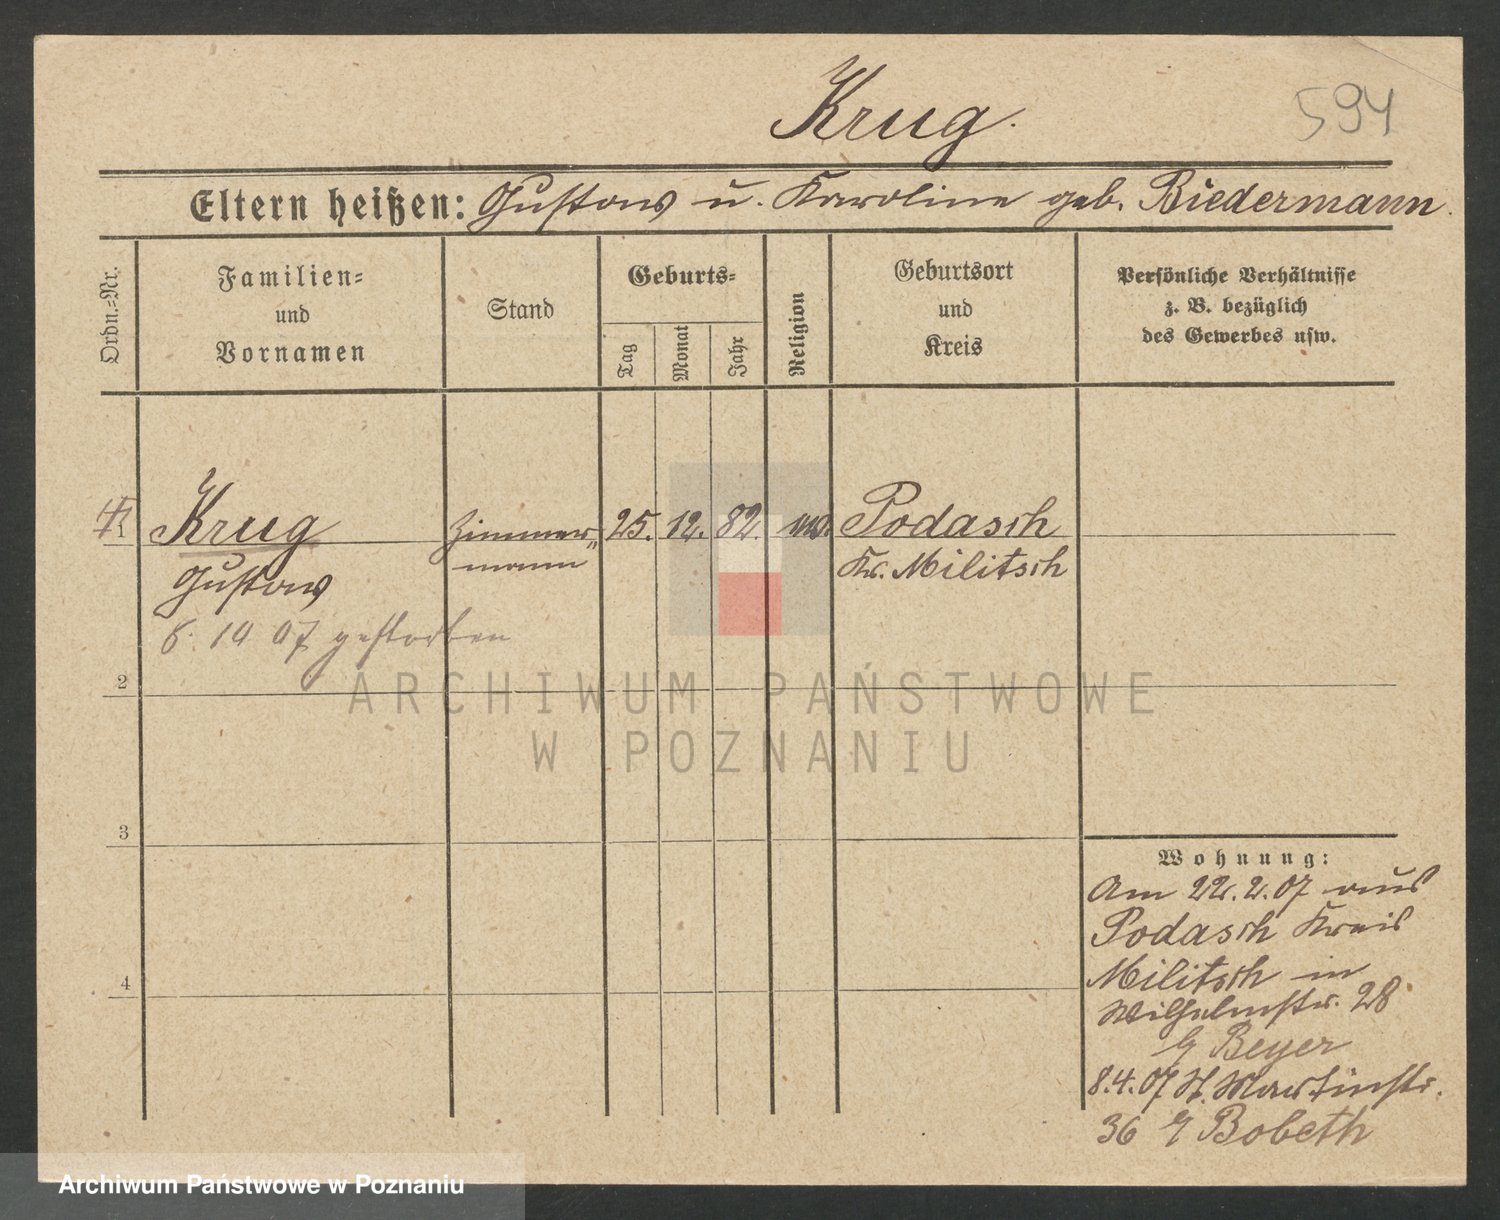 Krug.
594
Eltern heißen: Gustav u. Karoline geb. Biedermann.
Ordn.=Nr.
Familien=
und
Vornamen
Stand
Geburts=
Tag
Monat
Jahr
Religion
Geburtsort
und
Kreis
Persönliche Verhältnisse
z. B. bezüglich
des Gewerbes usw.
1
Krug
Gustav
Zimmer„
mann
25. 12. 82.
Podasch
Kr. Militsch
6. 10 07 gestorben
2
3
4
ARCHIWUM PAŃSTWOWE
W POZNANIU
Wohnung:
Am 22.2.07 aus
Podasch Kreis
Militsch in
Wilhelmstr. 28
b/ Beyer
8.4.07 St. Martinstr.
36 Bobeth
Archiwum Państwowe w Poznaniu